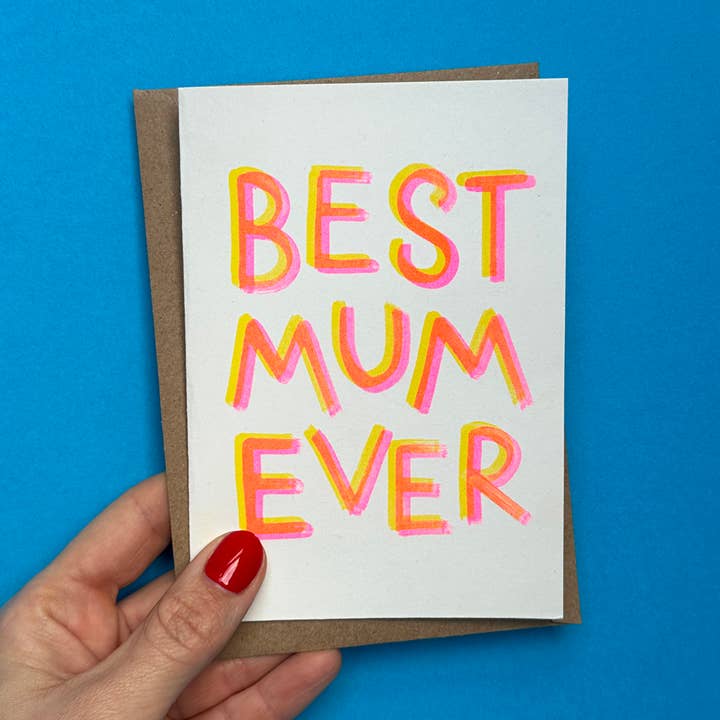 BEST
MUM
EVER